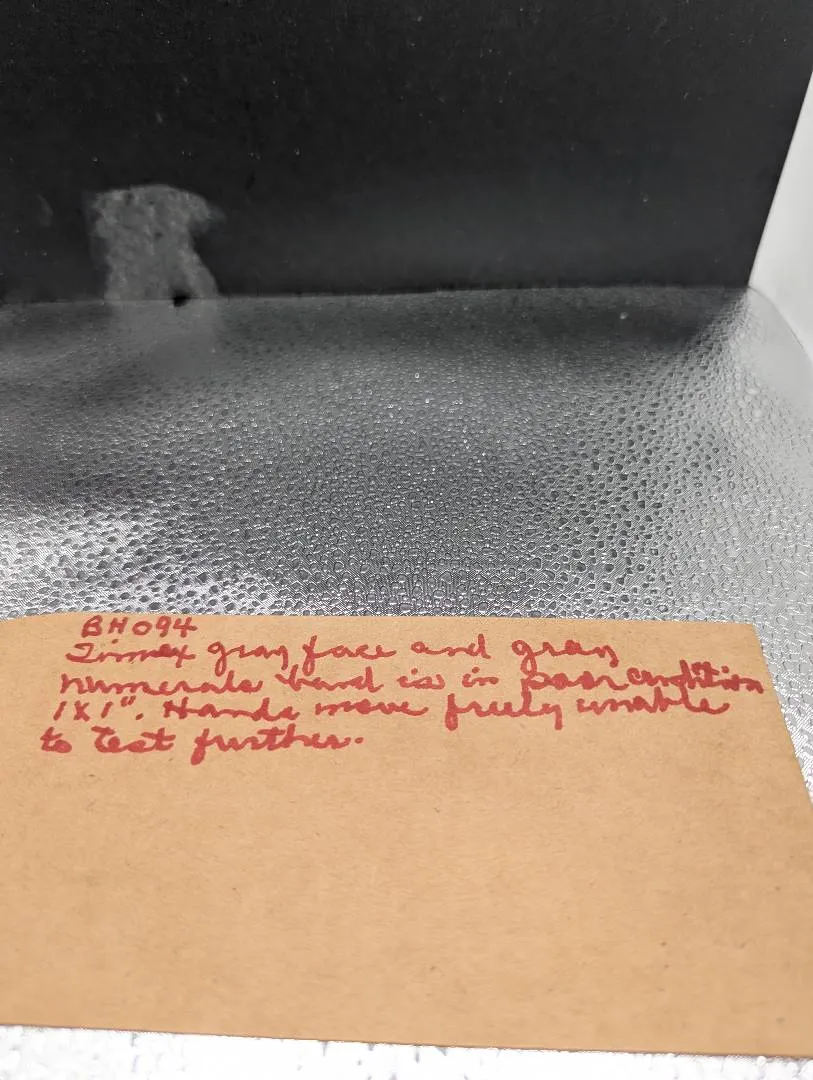 BH094
Timex gray face and gray
numerals band is in poor condition
1X1". Hands move freely unable
to test further.